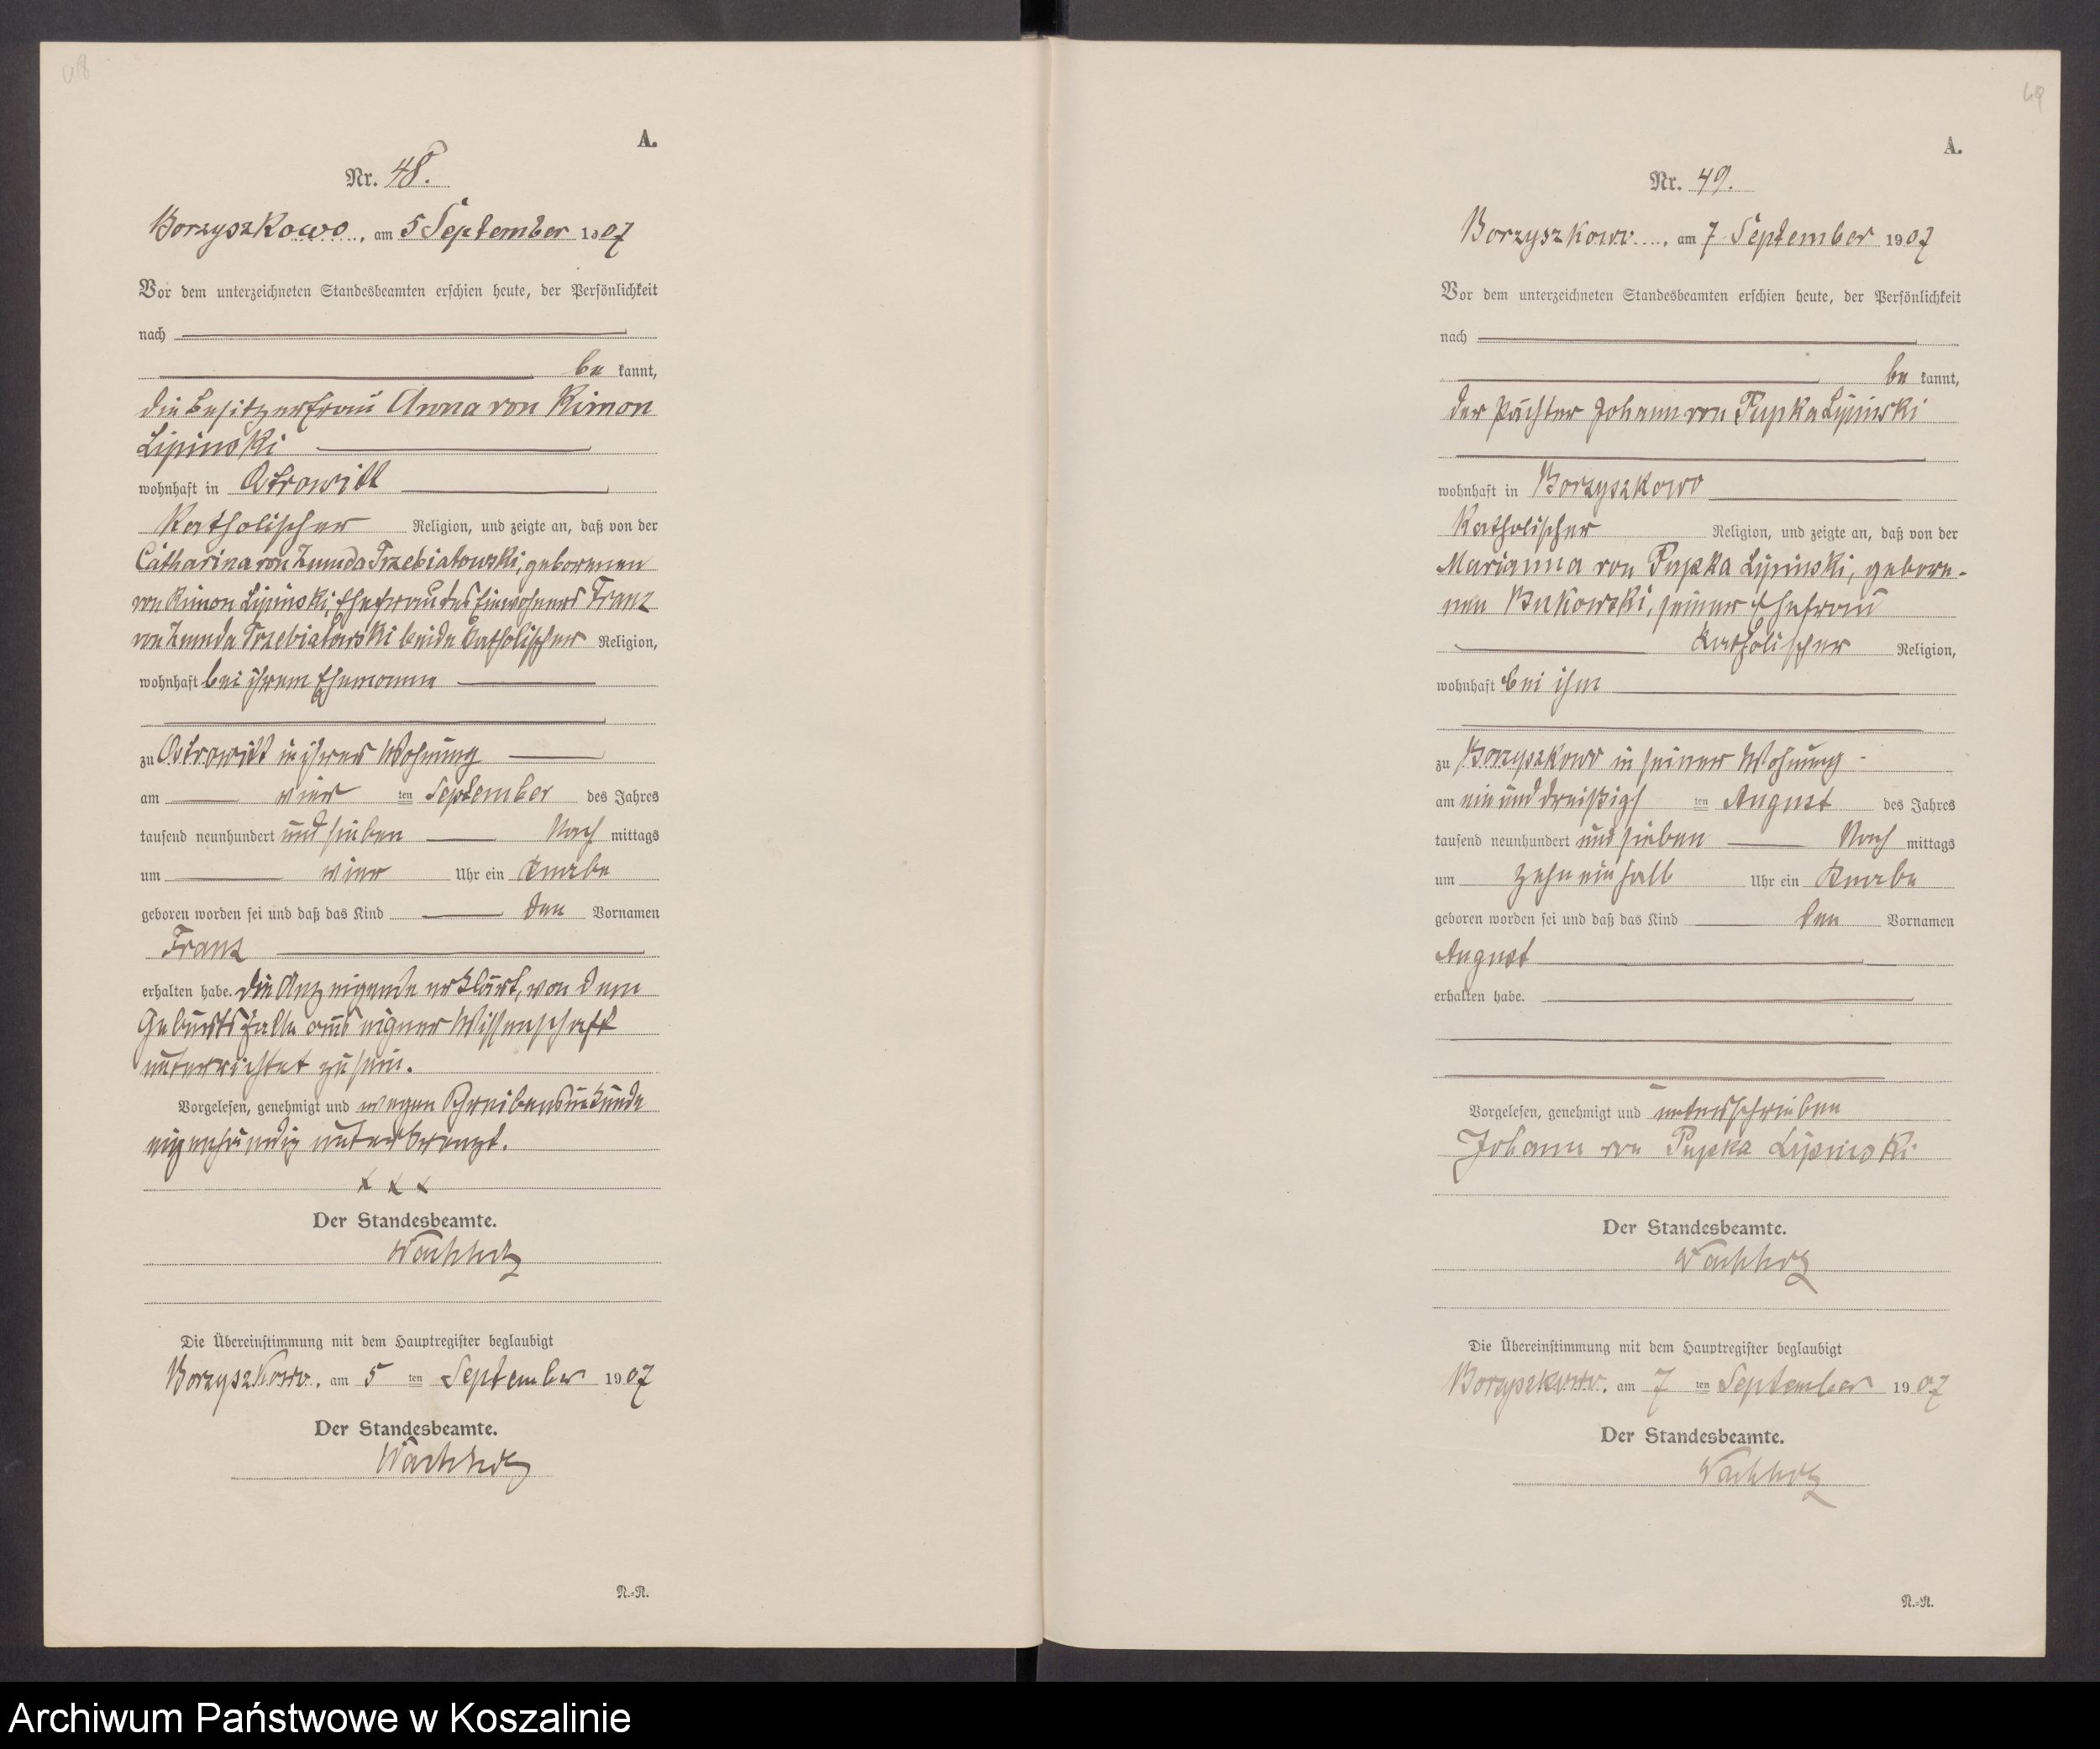 48
A.
Nr. 48.
Borzyszkowo, am 5 September 1907
Vor dem unterzeichneten Standesbeamten erschien heute, der Persönlichkeit
nach
be kannt,
die Besitzerfrau Anna von Kimon
Lipinski
wohnhaft in Ostrowitt
Katholischer Religion, und zeigte an, daß von der
Catharina von Zmuda Trzebiatowski, geborenen
von Kimon Lipinski, Ehefrau des Einwohners Franz
von Zmuda Trzebiatowski beide Katholischer Religion,
wohnhaft bei ihrem Ehemanne
zu Ostrowitt in ihrer Wohnung
am vier ten September des Jahres
tausend neunhundert und sieben Nach mittags
um vier Uhr ein Knabe
geboren worden sei und daß das Kind den Vornamen
Franz
erhalten habe. Die Anzeigende erklärt, von dem
Geburtsfalle aus eigner Wissenschaft
unterrichtet zu sein.
Vorgelesen, genehmigt und wegen Schreibensunkunde
eigenhändig unterkreuzt.
x x x
Der Standesbeamte.
Wachholz
Die Übereinstimmung mit dem Hauptregister beglaubigt
Borzyszkowo, am 5 ten September 1907
Der Standesbeamte.
Wachholz
N.-R.
49
A.
Nr. 49.
Borzyszkowo, am 7 September 1907
Vor dem unterzeichneten Standesbeamten erschien heute, der Persönlichkeit
nach
be kannt,
der Pächter Johann von Pupka Lipinski
wohnhaft in Borzyszkowo
Katholischer Religion, und zeigte an, daß von der
Marianna von Pupka Lipinski, gebore-
nen Bukowski, seiner Ehefrau
Katholischer Religion,
wohnhaft bei ihm
zu Borzyszkowo in seiner Wohnung -
am ein und dreißigs ten August des Jahres
tausend neunhundert und sieben Nach mittags
um zehn ein halb Uhr ein Knabe
geboren worden sei und daß das Kind den Vornamen
August
erhalten habe.
Vorgelesen, genehmigt und unterschrieben
Johann von Pupka Lipinski
Der Standesbeamte.
Wachholz
Die Übereinstimmung mit dem Hauptregister beglaubigt
Borzyszkowo, am 7 ten September 1907
Der Standesbeamte.
Wachholz
N.-R.
Archiwum Państwowe w Koszalinie